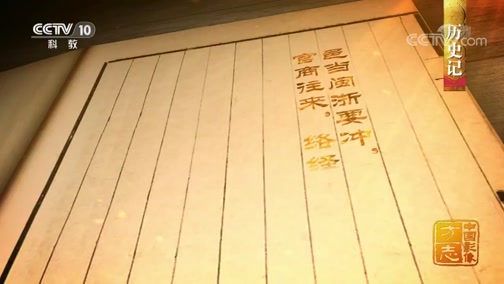 CCTV 10
科教
CCTV.com
历史记
邑当闽浙要冲，
官商往来，络经
中国影像
方志